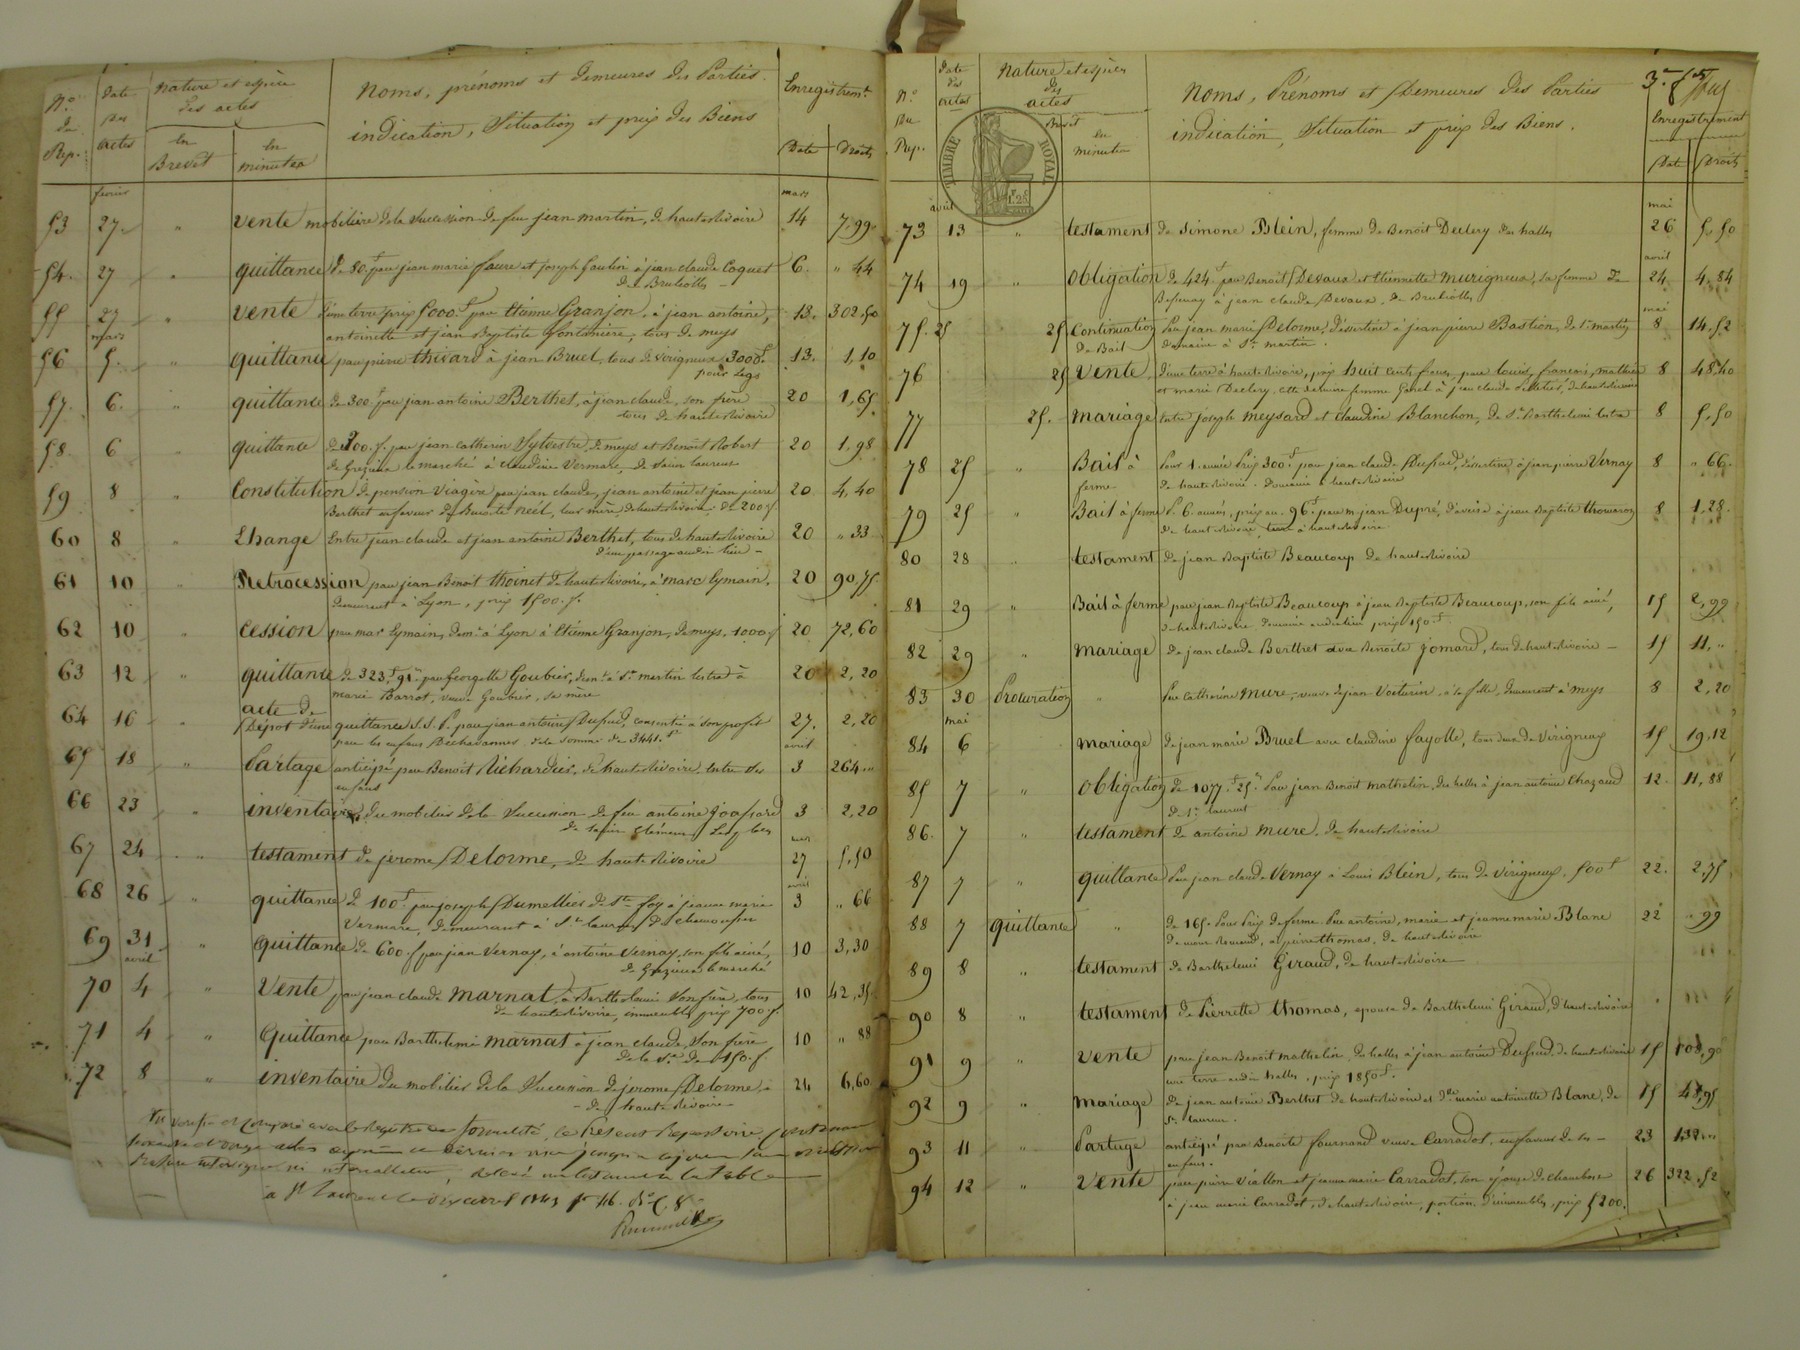 N.º de Rep.
Date des actes
Nature et espèce des actes
En Brevet
En minutes
Noms, prénoms et demeures des Parties.
indication, Situation et prix des Biens
Enregistremt.
Date
Droits
fevrier
mars
53 27 " Vente mobiliaire de la Succession de feu jean martin, de hauterivoire 14 7,99
54 27 " quittance de 80.f par jean marie faure et joseph à jean claude Coquet 6. " 44
de Brulioles
55 27 " Vente d'une terre prix 5000.f par Etienne Granjon, à jean antoine, 13. 302,50
antoinette et jean Baptiste fontaniere, tous de meys
mars
56 5. " quittance par pierre thivard à jean Bruel, tous de virigneux 3000f. 13. 1,10
pour legs
57. 6. " quittance de 300.f par jean antoine Berthet, à jean claude, son frère 20 1,65
tous de hauterivoire
58. 6 " quittance de 200.f. par jean Catherin Sylvestre, de meys et Benoît Robert 20 1,98
de Grezieux le marché à claudine Vermare, de Saint laurent
59 8 " Constitution de pension viagère par jean claude, jean antoine et jean pierre 20. 4,40
Berthet en faveur de Benoite néel, leur mère, de hauterivoire. de 200f.
60 8 " Echange Entre jean claude et jean antoine Berthet, tous de hauterivoire 20 " 33
d'un passage audit lieu
61 10 " Retrocession par jean Benoît thoinet de hauterivoire, à marc Eymain, 20 90,75
demeurant à Lyon, prix 1500.f.
62 10 " Cession par marc Eymain, demt. à Lyon à Etienne Granjon, de meys, 1000f 20 72,60
63 12 " quittance de 323.f 91c par Georgette Goubier, demt. à St. martin lestra à 20 2,20
marie Barrot, veuve Goubier, sa mère
64 16 " acte de
Dépot d'une quittance S.S.P. par jean antoine Dufud, consentie à son profit 27, 2,20
par les enfans de la somme de 3441.f
avril
65 18 " Partage anticipé par Benoît Richardier, de hauterivoire, entre ses 3 264,"
enfans
66 23 " inventaire du mobilier de la Succession de feu antoine 3 2,20
de Saint Clément
mars
67 24 " testament de jerome Delorme, de hauterivoire 27 5,50
avril
68 26 " quittance de 100f par joseph Dumellier de Ste. foy à jeanne marie 3 " 66
Vermare, demeurant à St. laurent de chamousset
69 31 " quittance de 600.f par jean Vernay, à antoine Vernay, son fils ainé, 10 3,30
de Grezieux le marché
avril
70 4 " Vente par jean claude Marnat, à Barthelemi son frère, tous 10 42,35
de hauterivoire, immeuble, prix 700f.
71 4 " Quittance par Barthelemi Marnat à jean claude, son frère 10 " 88
de la se. de 150.f.
72 8 " inventaire du mobilier de la Succession de jerome Delorme, 24 6,60
de hauterivoire
N.º Du Rep.
Date des actes
Nature et espèces des actes
Brevet
En minutes
Noms, Prénoms et Demeures des Parties
indication, Situation et prix des Biens.
Enregistrement
Date
Droits
TIMBRE ROYAL
1f.25c
mai
73 13 " testament de Simone Blein, femme de Benoît Declery des halles 26 5,50
avril
74 19 " Obligation de 424f par Benoît Devaux et Etiennette Murigneux, sa femme de 24 4,84
à jean claude Devaux, de Brulioles
mai
75. 25 25 Continuation Par jean marie Delorme, d'essertine à jean pierre Bastion, de St. martin 8 14,52
de Bail domaine à St. martin.
76 25 Vente d'une terre à hauterivoire, prix huit cents francs, par louis, françois, mathieu 8 48,40
et marie Declery, cette dernière femme à jean claude de hauterivoire
77 25. Mariage entre joseph Meysard et claudine Blanchon, de St. Barthelemi lestra 8 5,50
78 25 " Bail à Pour 1 année Prix 300f par jean claude Dufud, d'essertine, à jean pierre Vernay 8 " 66.
ferme de hauterivoire. Domaine à hauterivoire
79 25 " Bail à ferme Pr. 6. années, prix an. 96.f par m. jean Dupré, d'aveize à jean Baptiste thomasson 8 1,28.
de hauterivoire, terre à hauterivoire
80 28 testament de jean Baptiste Beaucoup de hauterivoire
81 29 " Bail à ferme par jean Baptiste Beaucoup à jean Baptiste Beaucoup, son fils ainé, 15 2,99
de hauterivoire domaine audit lieu prix 150.f
82 29 " Mariage de jean claude Berthet avec Benoite jomard, tous de hauterivoire 15 11,"
83 30 Procuration " Par Catherine Mure, veuve de jean Voiturin, à sa fille, demeurant à meys 8 2,20
mai
84 6 Mariage de jean marie Bruel avec claudine fayolle, tous deux de Virigneux 15 19,12
85 7 " Obligation de 1077.f 25c Par jean Benoît mathelin, des halles à jean antoine Chazaud 12. 11,88
de St. laurent
86. 7 " testament de antoine Mure, de hauterivoire
87 7 " quittance Par jean claude Vernay à Louis Blein, tous de Virigneux, 500f 22. 2,75
88 7 quittance " de 165. Pour Prix de ferme Par antoine, marie et jeanne marie Blanc 22 " 99
à pierre thomas, de hauterivoire
89 8 " testament de Barthelemi Giraud, de hauterivoire
90 8 " testament de Pierrette thomas, epouse de Barthelemi Giraud, de hauterivoire
91 9 " Vente par jean Benoît mathelin, des halles à jean antoine Dufud, de hauterivoire 15 108,90
une terre audit halles, prix 1850f.
92 9 " Mariage de jean antoine Berthet de hauterivoire et dlle. marie antoinette Blanc, de 15 48,95
St. laurent.
93 11 " Partage anticipé par Benoite fournand veuve Carradot, en faveur de ses 23 132,"
enfans.
94 12 " Vente par pierre Viallon et jeanne marie Carradot, son épouse de chambost 26 322,52
à jean marie Carradot, de hauterivoire, portion d'immeubles, prix 5200.